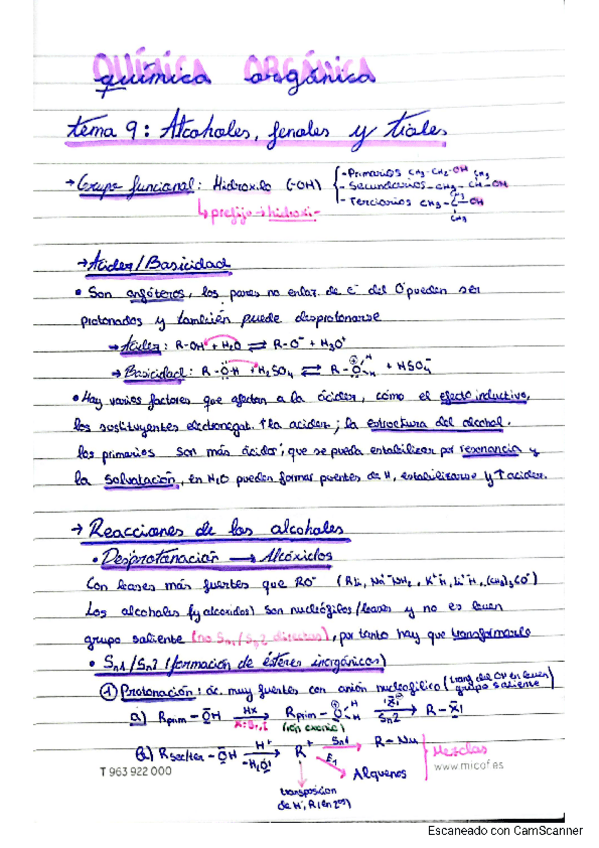 QUÍMICA ORGÁNICA
química orgánica
tema 9: Alcoholes, fenoles y tioles
→ Grupo funcional: Hidroxilo (-OH)
- Primarios CH3-CH2-OH
- Secundarios - CH3 - CH - OH
CH3
- Terciarios CH3 - C - OH
CH3
↳ prefijo → hidroxi-
→ Acidez/Basicidad
• Son anfóteros, los pares no enlaz. de e- del O pueden ser
protonados y también puede desprotonarse
→ Acidez: R-OH + H2O ⇌ R-O- + H3O+
→ Basicidad: R-ÖH + H2SO4 ⇌ R-O-H + HSO4-
H
• Hay varios factores que afectan a la ácidez, cómo el efecto inductivo,
los sustituyentes electronegat. ↑ la acidez; la estructura del alcohol.
los primarios son más ácidos; que se pueda estabilizar por resonancia y
la solvatación, en H2O pueden formar puentes de H, estabilizarse y ↑ acidez.
→ Reacciones de los alcoholes
• Desprotonación → Alcóxidos
Con bases más fuertes que RO- (RLi, Na+NH2, K+H, Li+H, (CH3)3CO-)
Los alcoholes (y alcoxidos) son nucleófilos/bases y no es buen
grupo saliente (no SN1/SN2 directas), por tanto hay que transformarlo
• SN1/SN2 (formación de ésteres inorgánicos)
① Protonación: ác. muy fuertes con anión nucleofílico (transf. del OH en buen
grupo saliente
a) Rprim - OH HX Rprim - O H H X SN2 R - X
X: Br, I (ión oxonio)
b) Rsec/ter - OH H+ R+ SN1 R - Nu
-H2O E1 Alquenos
Mezclas
transposicion
de H, R (en 2os)
T 963 922 000
www.micof.es
Escaneado con CamScanner